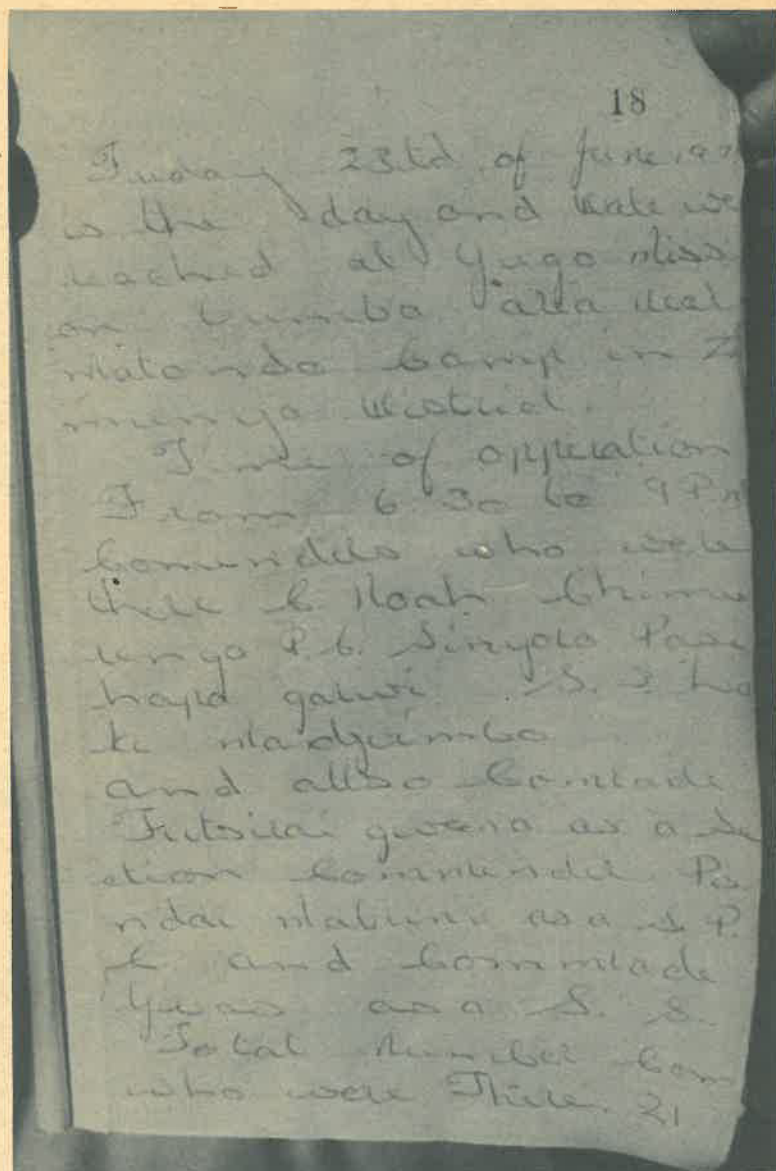 18
Friday 23td of June 197
is the day and date we
reached at Yugo Miss
on Vumba area
Matondo Camp in Z
munya
Time of oppreation
From 6 30 to 9 Pm
Comenders who were
there C. Noah Chimu
renga P.C. Sinyolo Pase
hapa gatwi S. S
ki Madzimbo
and allso Comrade
Tutsirai gwena as a Se
ction Commender Pa
ndai Mabunu as a S P.
C and Commrade
as a S. S.
Total Number Com
who were There. 21